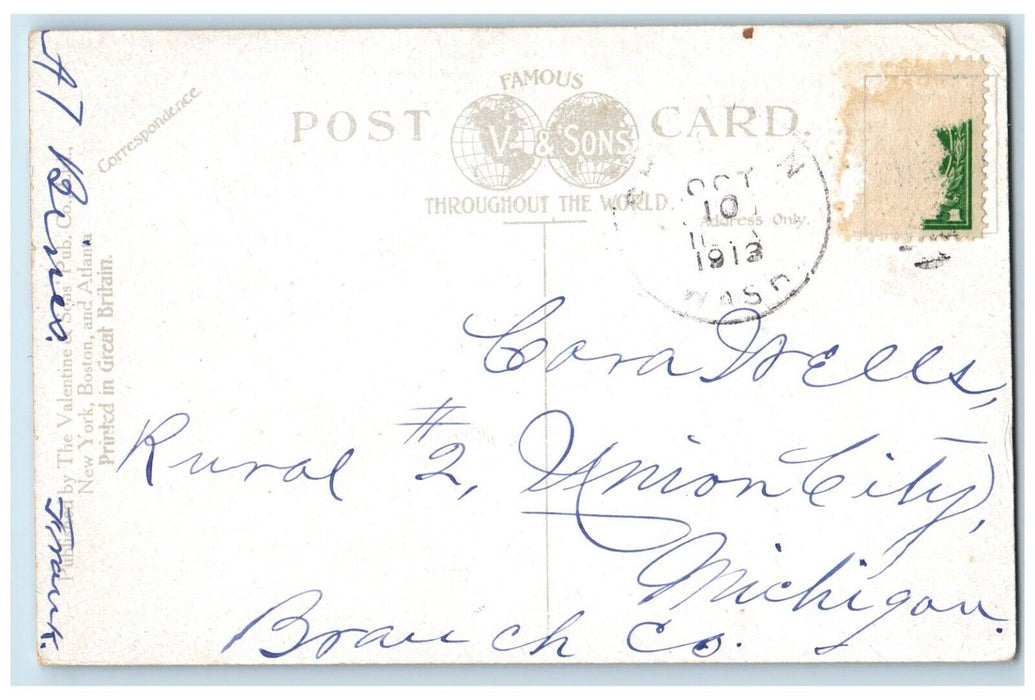 FAMOUS
POST CARD.
V. & SONS
THROUGHOUT THE WORLD.
Correspondence
Address Only.
OCT
10
1913
WASH
1
Cora Wells,
Rural #2, Union City,
Michigan.
Branch Co.
Frank.
Published by The Valentine & Sons' Pub. Co.
New York, Boston, and Atlanta
Printed in Great Britain.